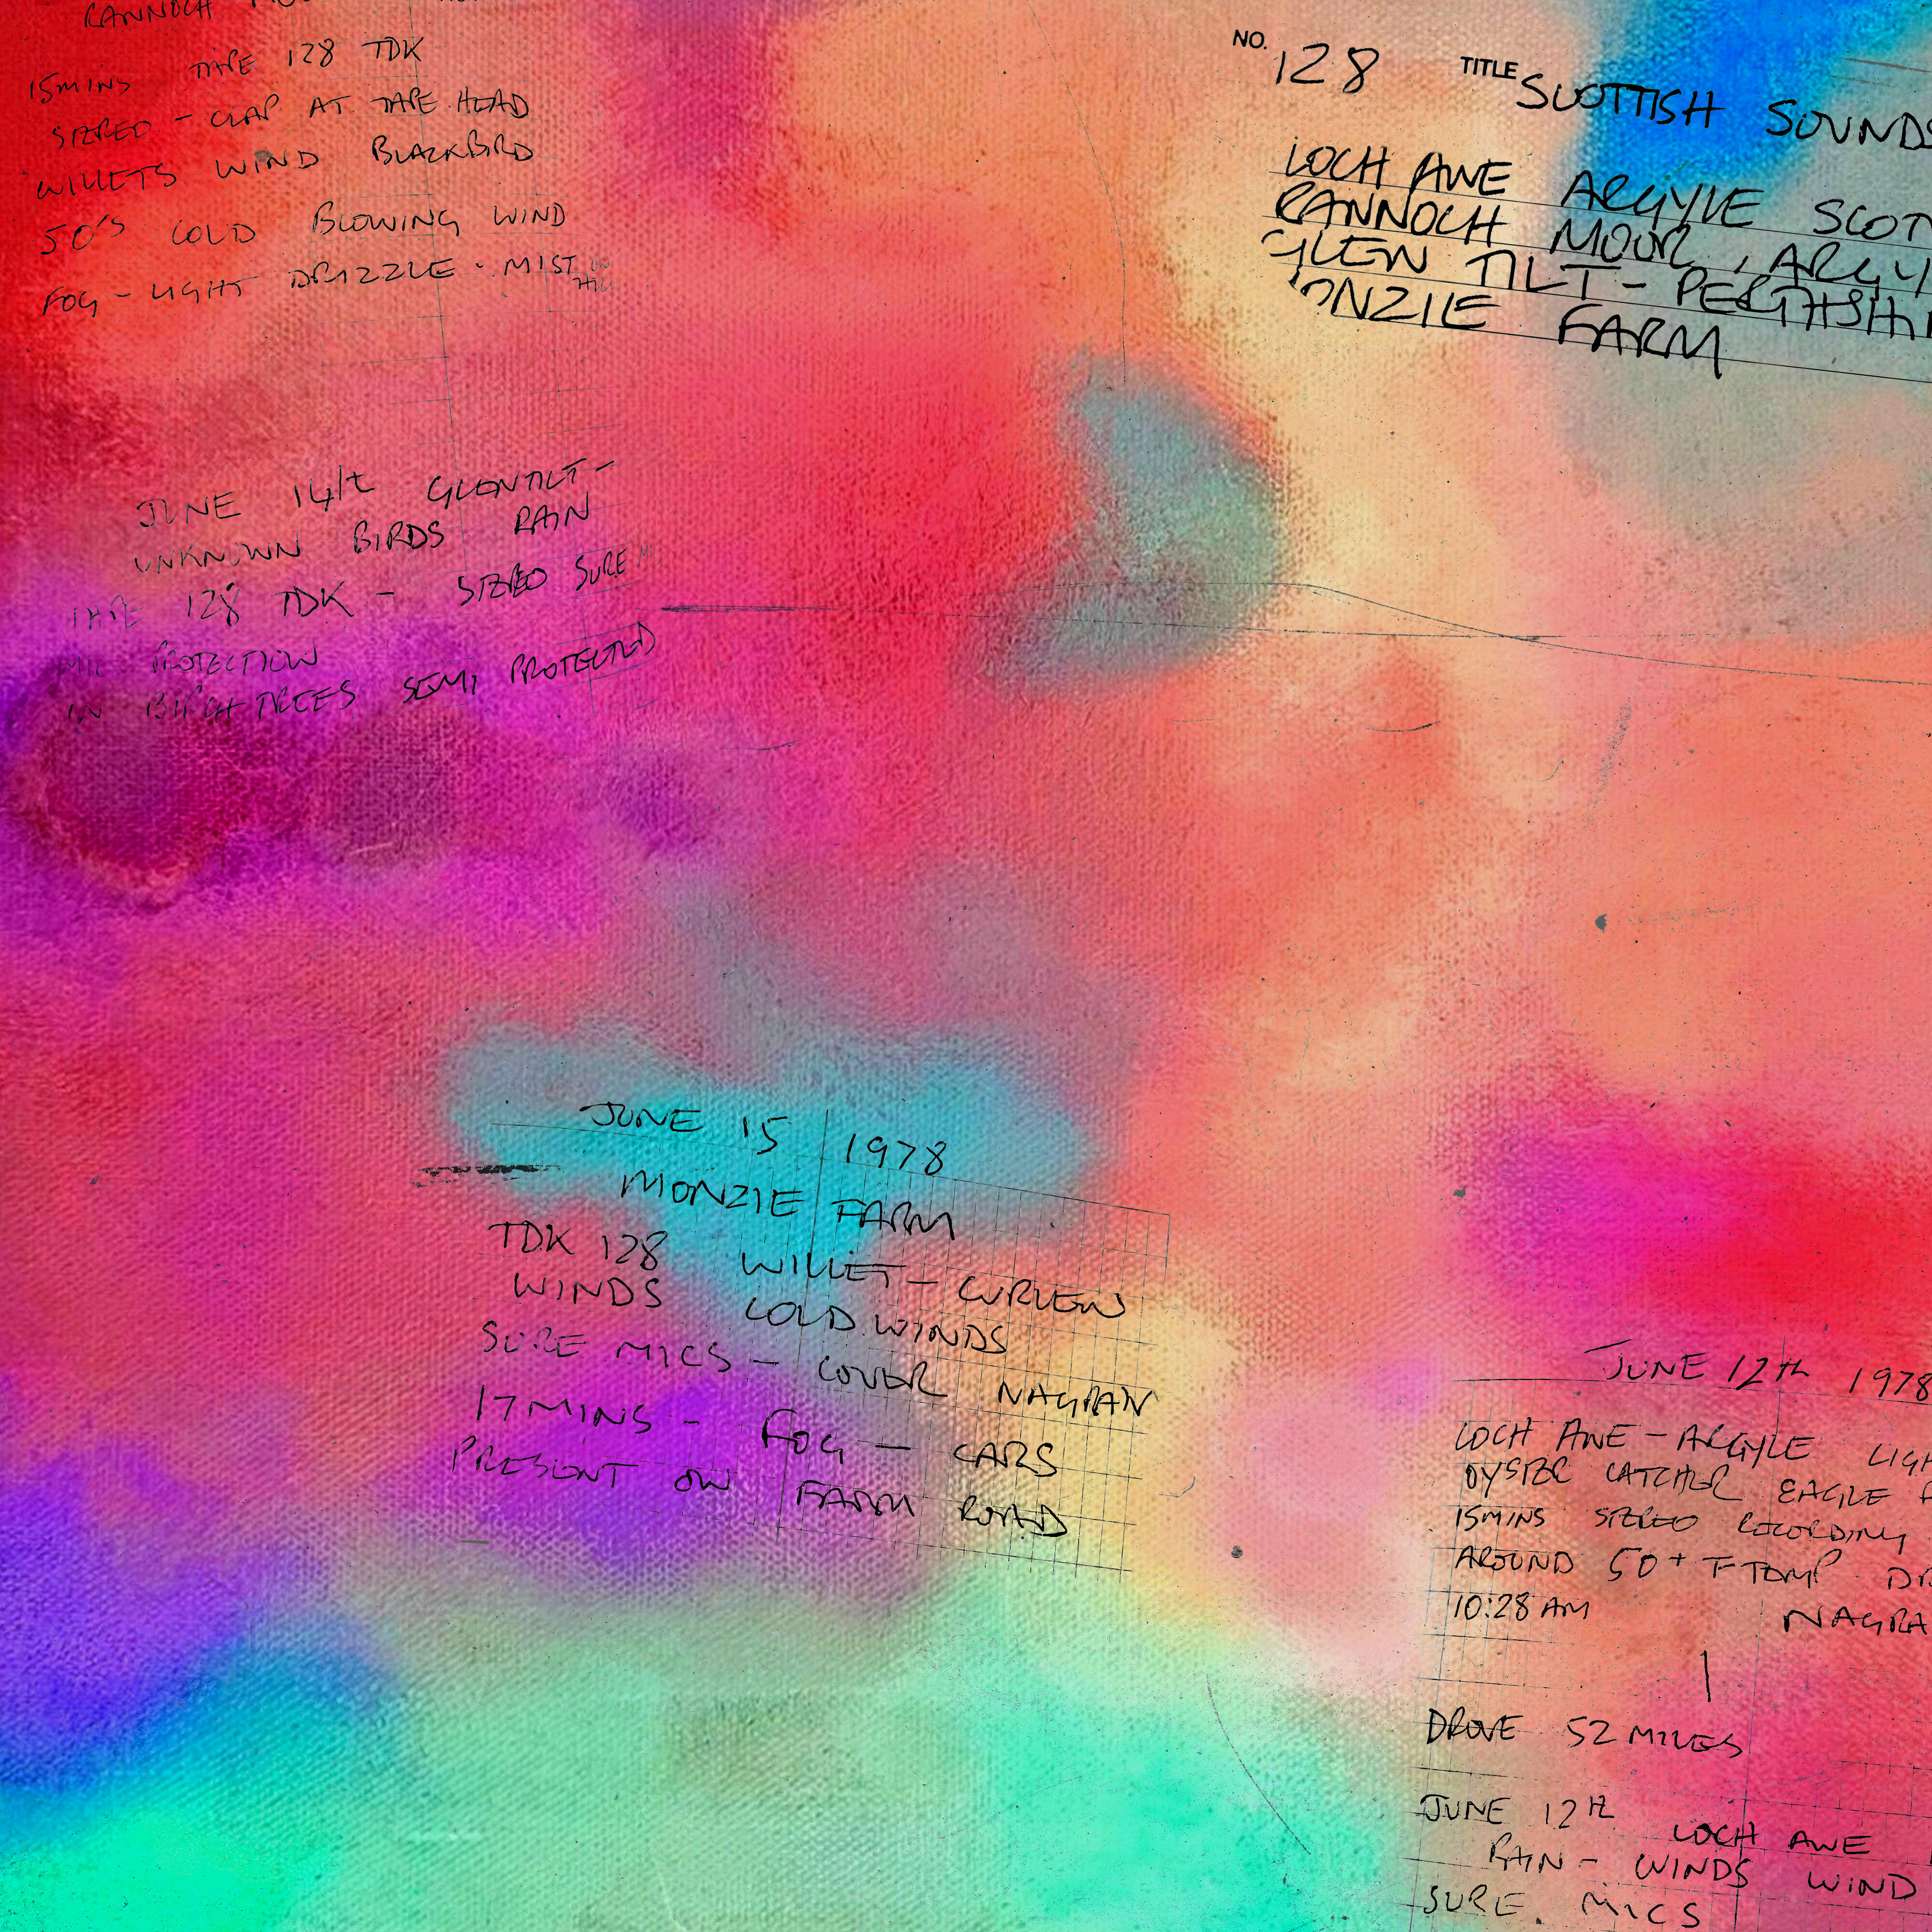 RANNOCH
15MINS TAPE 128 TDK
STEREO - CLAP AT TAPE HEAD
WILLETS WIND BLACKBIRD
50'S COLD BLOWING WIND
FOG - LIGHT DRIZZLE - MIST ON HILL
NO. 128 TITLE SCOTTISH SOUNDS
LOCH AWE ARGYLE SCOT
RANNOCH MOOR, ARGY
GLEN TILT - PERTHSHI
ONZIE FARM
JUNE 14/t GLENTILT -
UNKNOWN BIRDS RAIN
TAPE 128 TDK - STEREO SURE
MIC PROTECTION
IN BIRCH TREES SEMI PROTECTED
JUNE 15 1978
MONZIE FARM
TDK 128 WILLET - CURLEW
WINDS COLD WINDS
SURE MICS - COVER NAGRAN
17MINS - FOG - CARS
PRESENT ON FARM ROAD
JUNE 12th 1978
LOCH AWE - ARGYLE LIGH
OYSTER CATCHER EAGLE
15MINS STEREO RECORDING
AROUND 50+ F TEMP DR
10:28 AM NAGRA
DROVE 52 MILES
JUNE 12th LOCH AWE
RAIN - WINDS WIND
SURE MICS